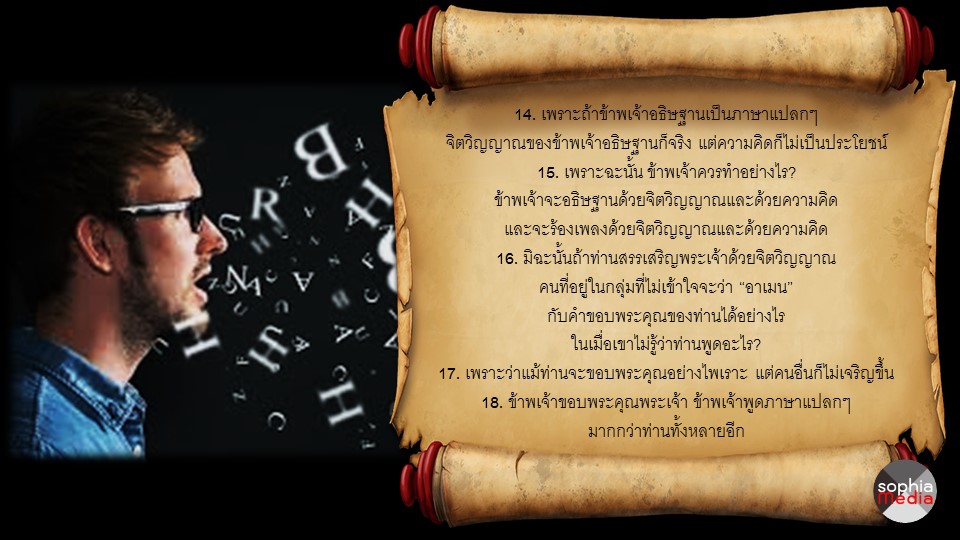 14. เพราะถ้าข้าพเจ้าอธิษฐานเป็นภาษาแปลกๆ
จิตวิญญาณของข้าพเจ้าอธิษฐานก็จริง แต่ความคิดก็ไม่เป็นประโยชน์
15. เพราะฉะนั้น ข้าพเจ้าควรทำอย่างไร?
ข้าพเจ้าจะอธิษฐานด้วยจิตวิญญาณและด้วยความคิด
และจะร้องเพลงด้วยจิตวิญญาณและด้วยความคิด
16. มิฉะนั้นถ้าท่านสรรเสริญพระเจ้าด้วยจิตวิญญาณ
คนที่อยู่ในกลุ่มที่ไม่เข้าใจจะว่า “อาเมน”
กับคำขอบพระคุณของท่านได้อย่างไร
ในเมื่อเขาไม่รู้ว่าท่านพูดอะไร?
17. เพราะว่าแม้ท่านจะขอบพระคุณอย่างไพเราะ แต่คนอื่นก็ไม่เจริญขึ้น
18. ข้าพเจ้าขอบพระคุณพระเจ้า ข้าพเจ้าพูดภาษาแปลกๆ
มากกว่าท่านทั้งหลายอีก
sophia
media